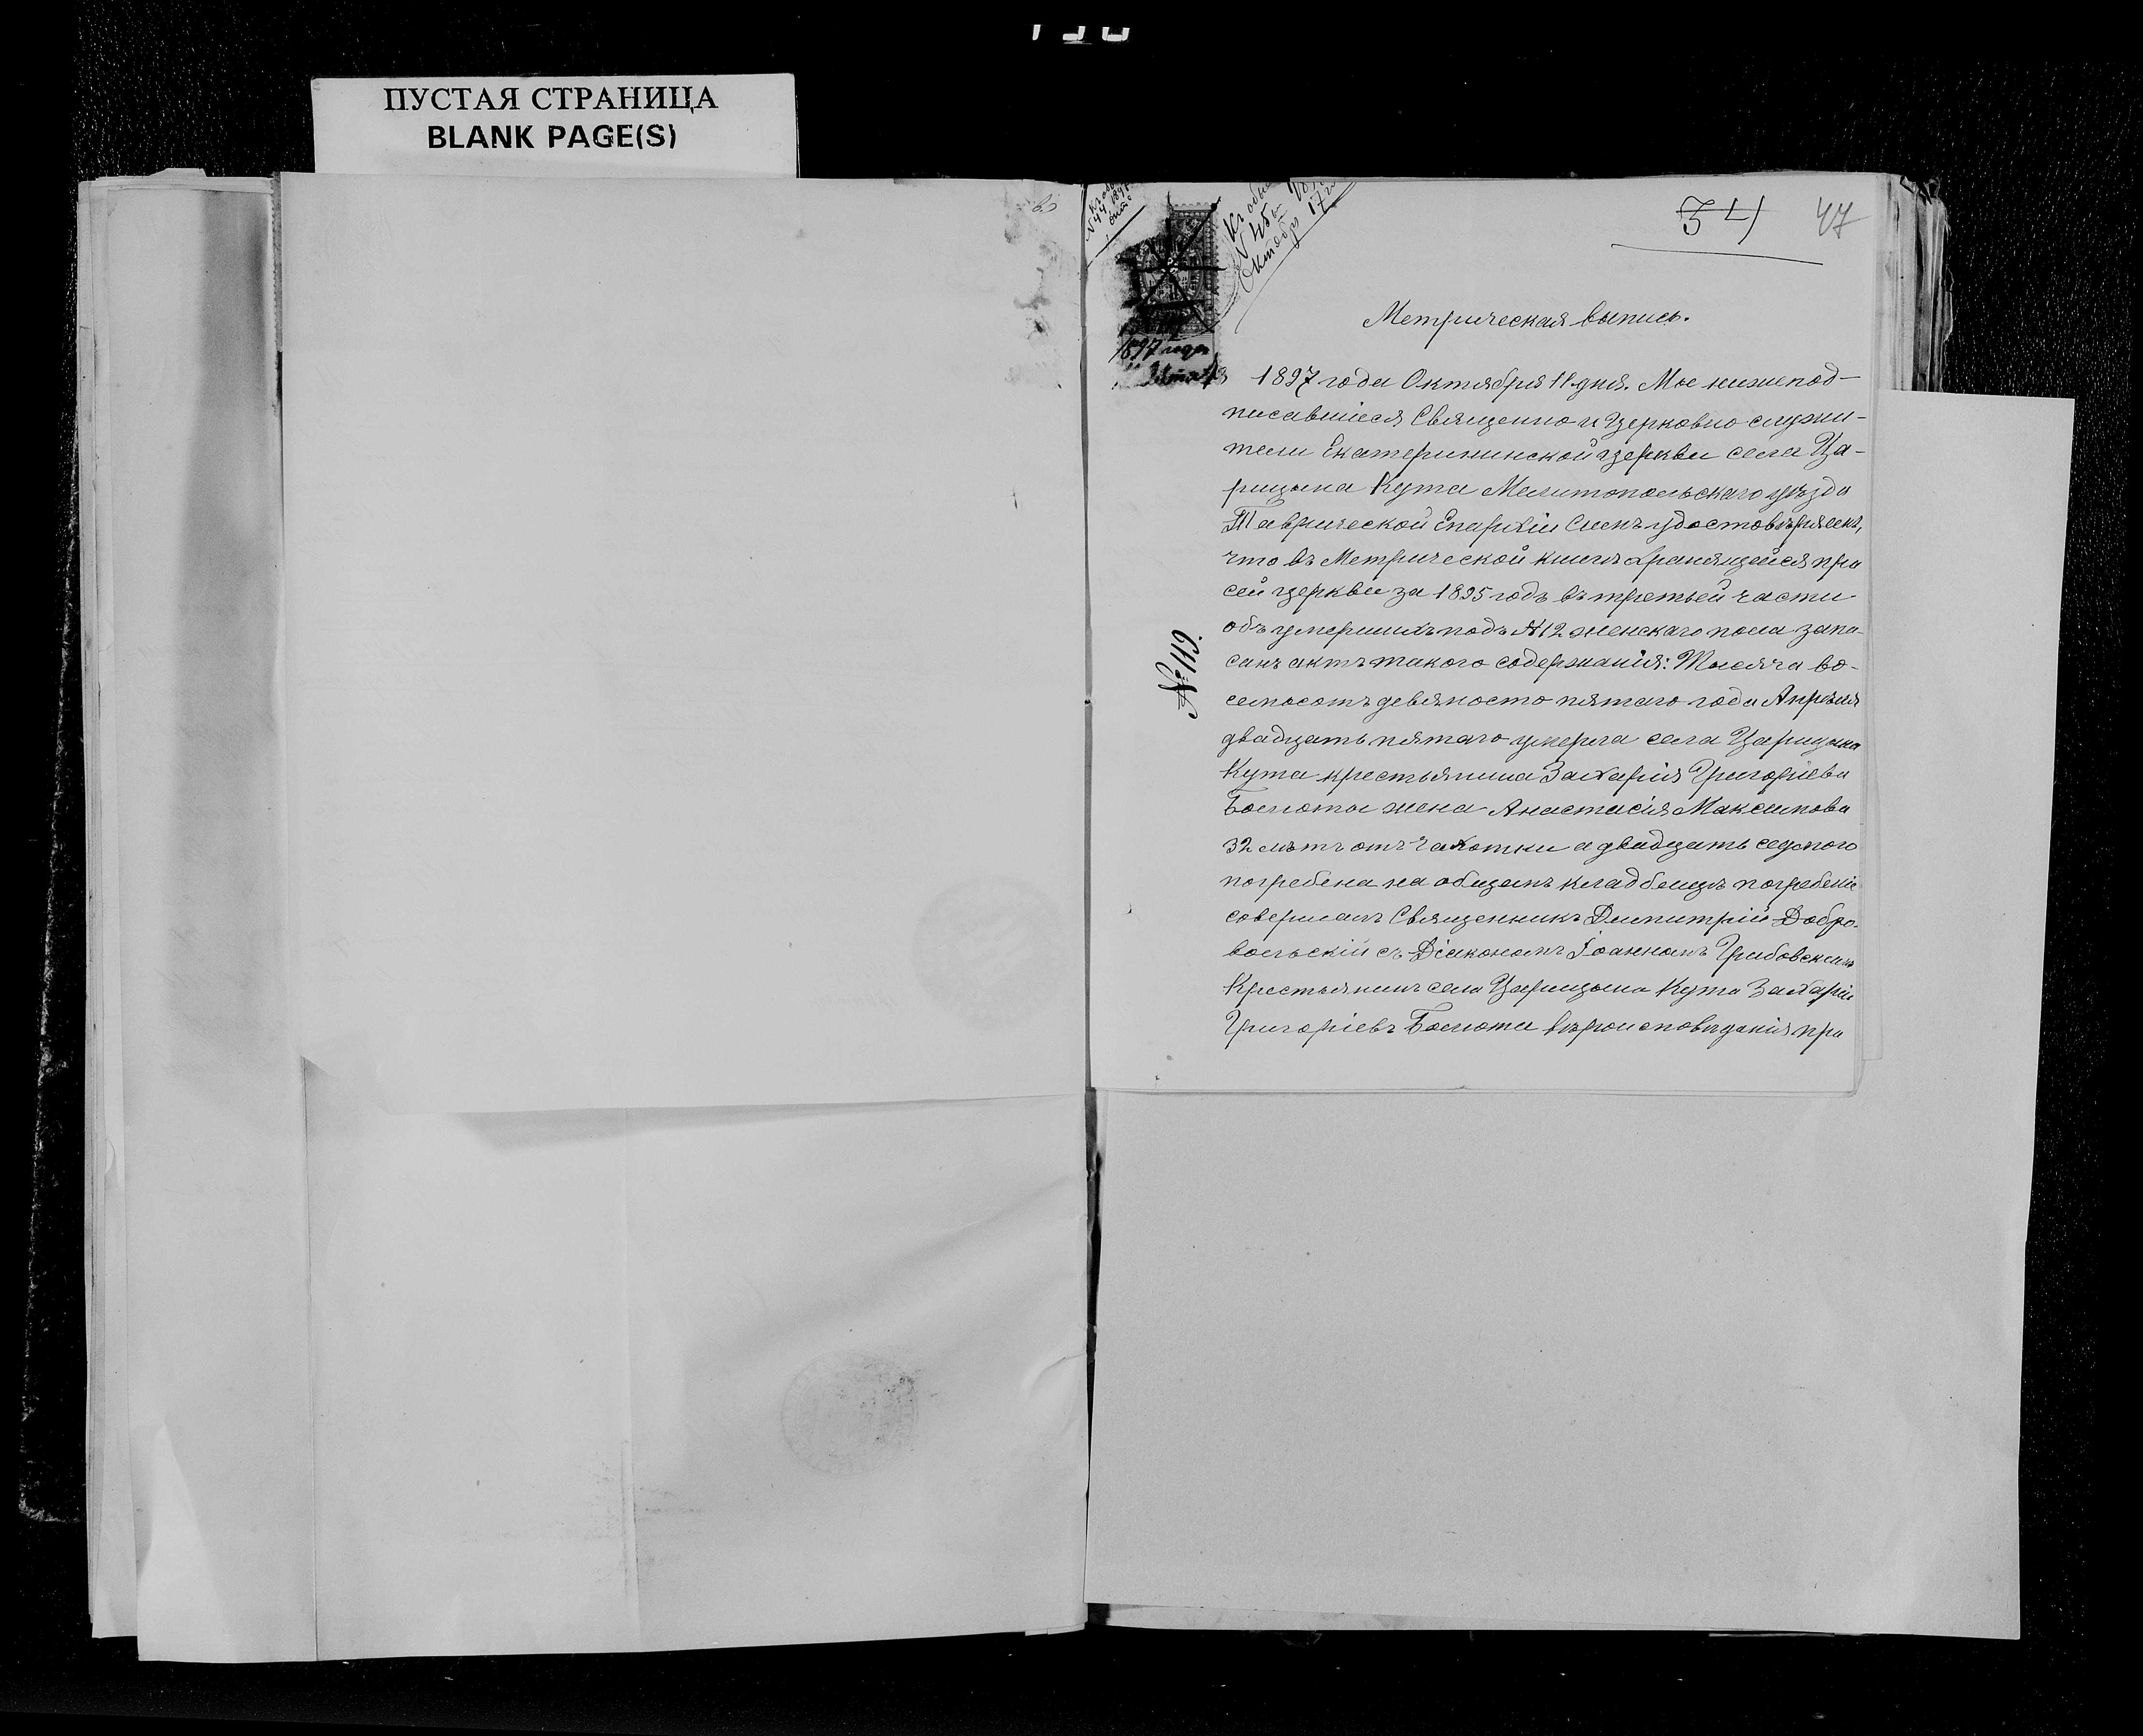 ПУСТАЯ СТРАНИЦА
BLANK PAGE(S)
34 47
Октобр 17
1897 года
Метрическая выпись.
1897 года Октября 11 дня. Мы нижепод-
писавшіеся Священно и Церковно служи-
тели Екатерининской церкви села Ца-
рицына Кута Мелитопольскаго уѣзда
Таврической Епархіи Симъ удостовѣряемъ,
что въ Метрической книгѣ хранящейся при
сей церкви за 1895 годъ въ третьей части
объ умершихъ подъ №12 женскаго пола запи-
санъ актъ такого содержанія: Тысяча во-
семьсотъ девяносто пятаго года Апрѣля
двадцать пятаго умерла села Царицына
Кута крестьянина Захарія Григоріева
Болюты жена Анастасія Максимова
32 лѣтъ отъ чахотки а двадцать седьмого
погребена на общемъ кладбищѣ погребеніе
совершалъ Священникъ Димитрій Добро-
вольскій съ Діакономъ Іоанномъ Грибовскимъ
Крестьянинъ села Царицына Кута Захарій
Григоріевъ Болюта вѣроисповѣданія пра
№119